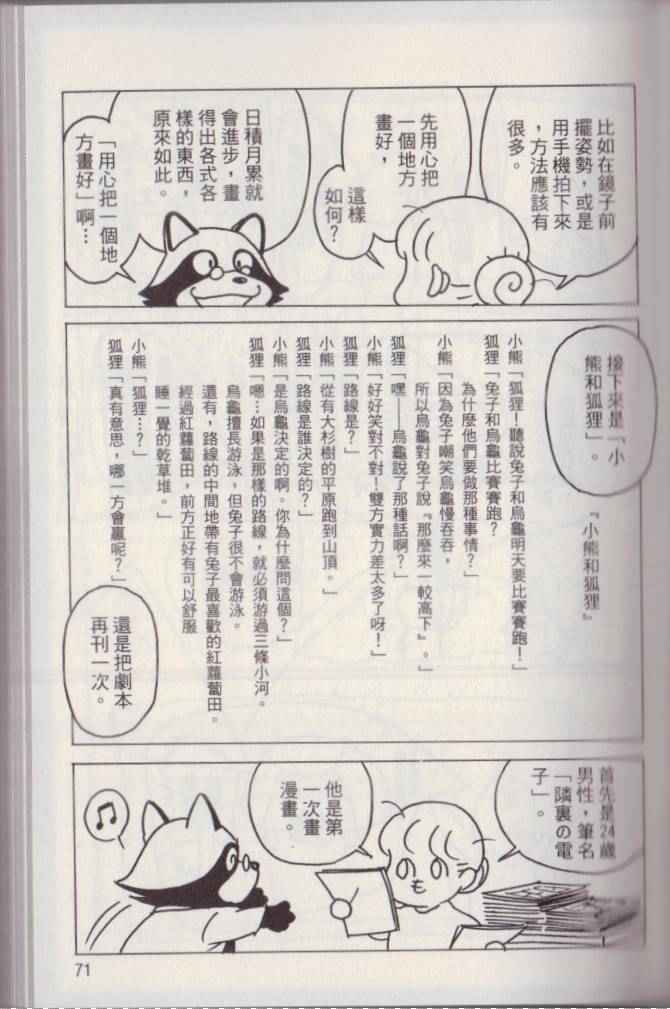 比如在鏡子前
擺姿勢，或是
用手機拍下來
，方法應該有
很多。
先用心把
一個地方
畫好，
這樣
如何？
日積月累就
會進步，畫
得出各式各
樣的東西，
原來如此。
「用心把一個地
方畫好」啊…
接下來是「小
熊和狐狸」。
『小熊和狐狸』
小熊「狐狸！聽說兔子和烏龜明天要比賽賽跑！」
狐狸「兔子和烏龜比賽賽跑？
為什麼他們要做那種事情？」
小熊「因為兔子嘲笑烏龜慢吞吞，
所以烏龜對兔子說『那麼來一較高下』。」
狐狸「嘿——烏龜說了那種話啊？」
小熊「好好笑對不對！雙方實力差太多了呀！」
狐狸「路線是？」
小熊「從有大杉樹的平原跑到山頂。」
狐狸「路線是誰決定的？」
小熊「是烏龜決定的啊。你為什麼問這個？」
狐狸「嗯…如果是那樣的路線，就必須游過三條小河。
烏龜擅長游泳，但兔子很不會游泳。
還有，路線的中間地帶有兔子最喜歡的紅蘿蔔田。
經過紅蘿蔔田，前方正好有可以舒服
睡一覺的乾草堆。」
小熊「狐狸…？」
狐狸「真有意思，哪一方會贏呢？」
還是把劇本
再刊一次。
首先是24歲
男性，筆名
「隣裏の電
子」。
他是第
一次畫
漫畫。
71